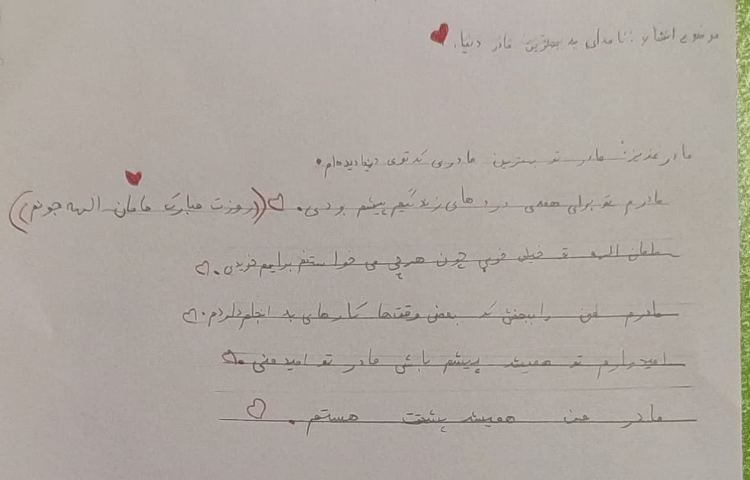 موضوع انشا: نامه‌ای به بهترین مادر دنیا.
مادر عزیزم مادر تو بهترین مادری که توی دنیا دیده‌ام.
مادرم تو برای همه‌ی درد های زندگیم پیشم بودی. ((روزت مبارک مامان الهه جونم))
مامان الهه تو خیلی خوبی چون هرچی می خواستم برایم خریدی.
مادرم من را ببخش که بعضی وقت‌ها کارهای بد انجام دادم.
امیدوارم تو همیشه پیشم باشی مادر تو امید منی
مادر من همیشه پشتت هستم.